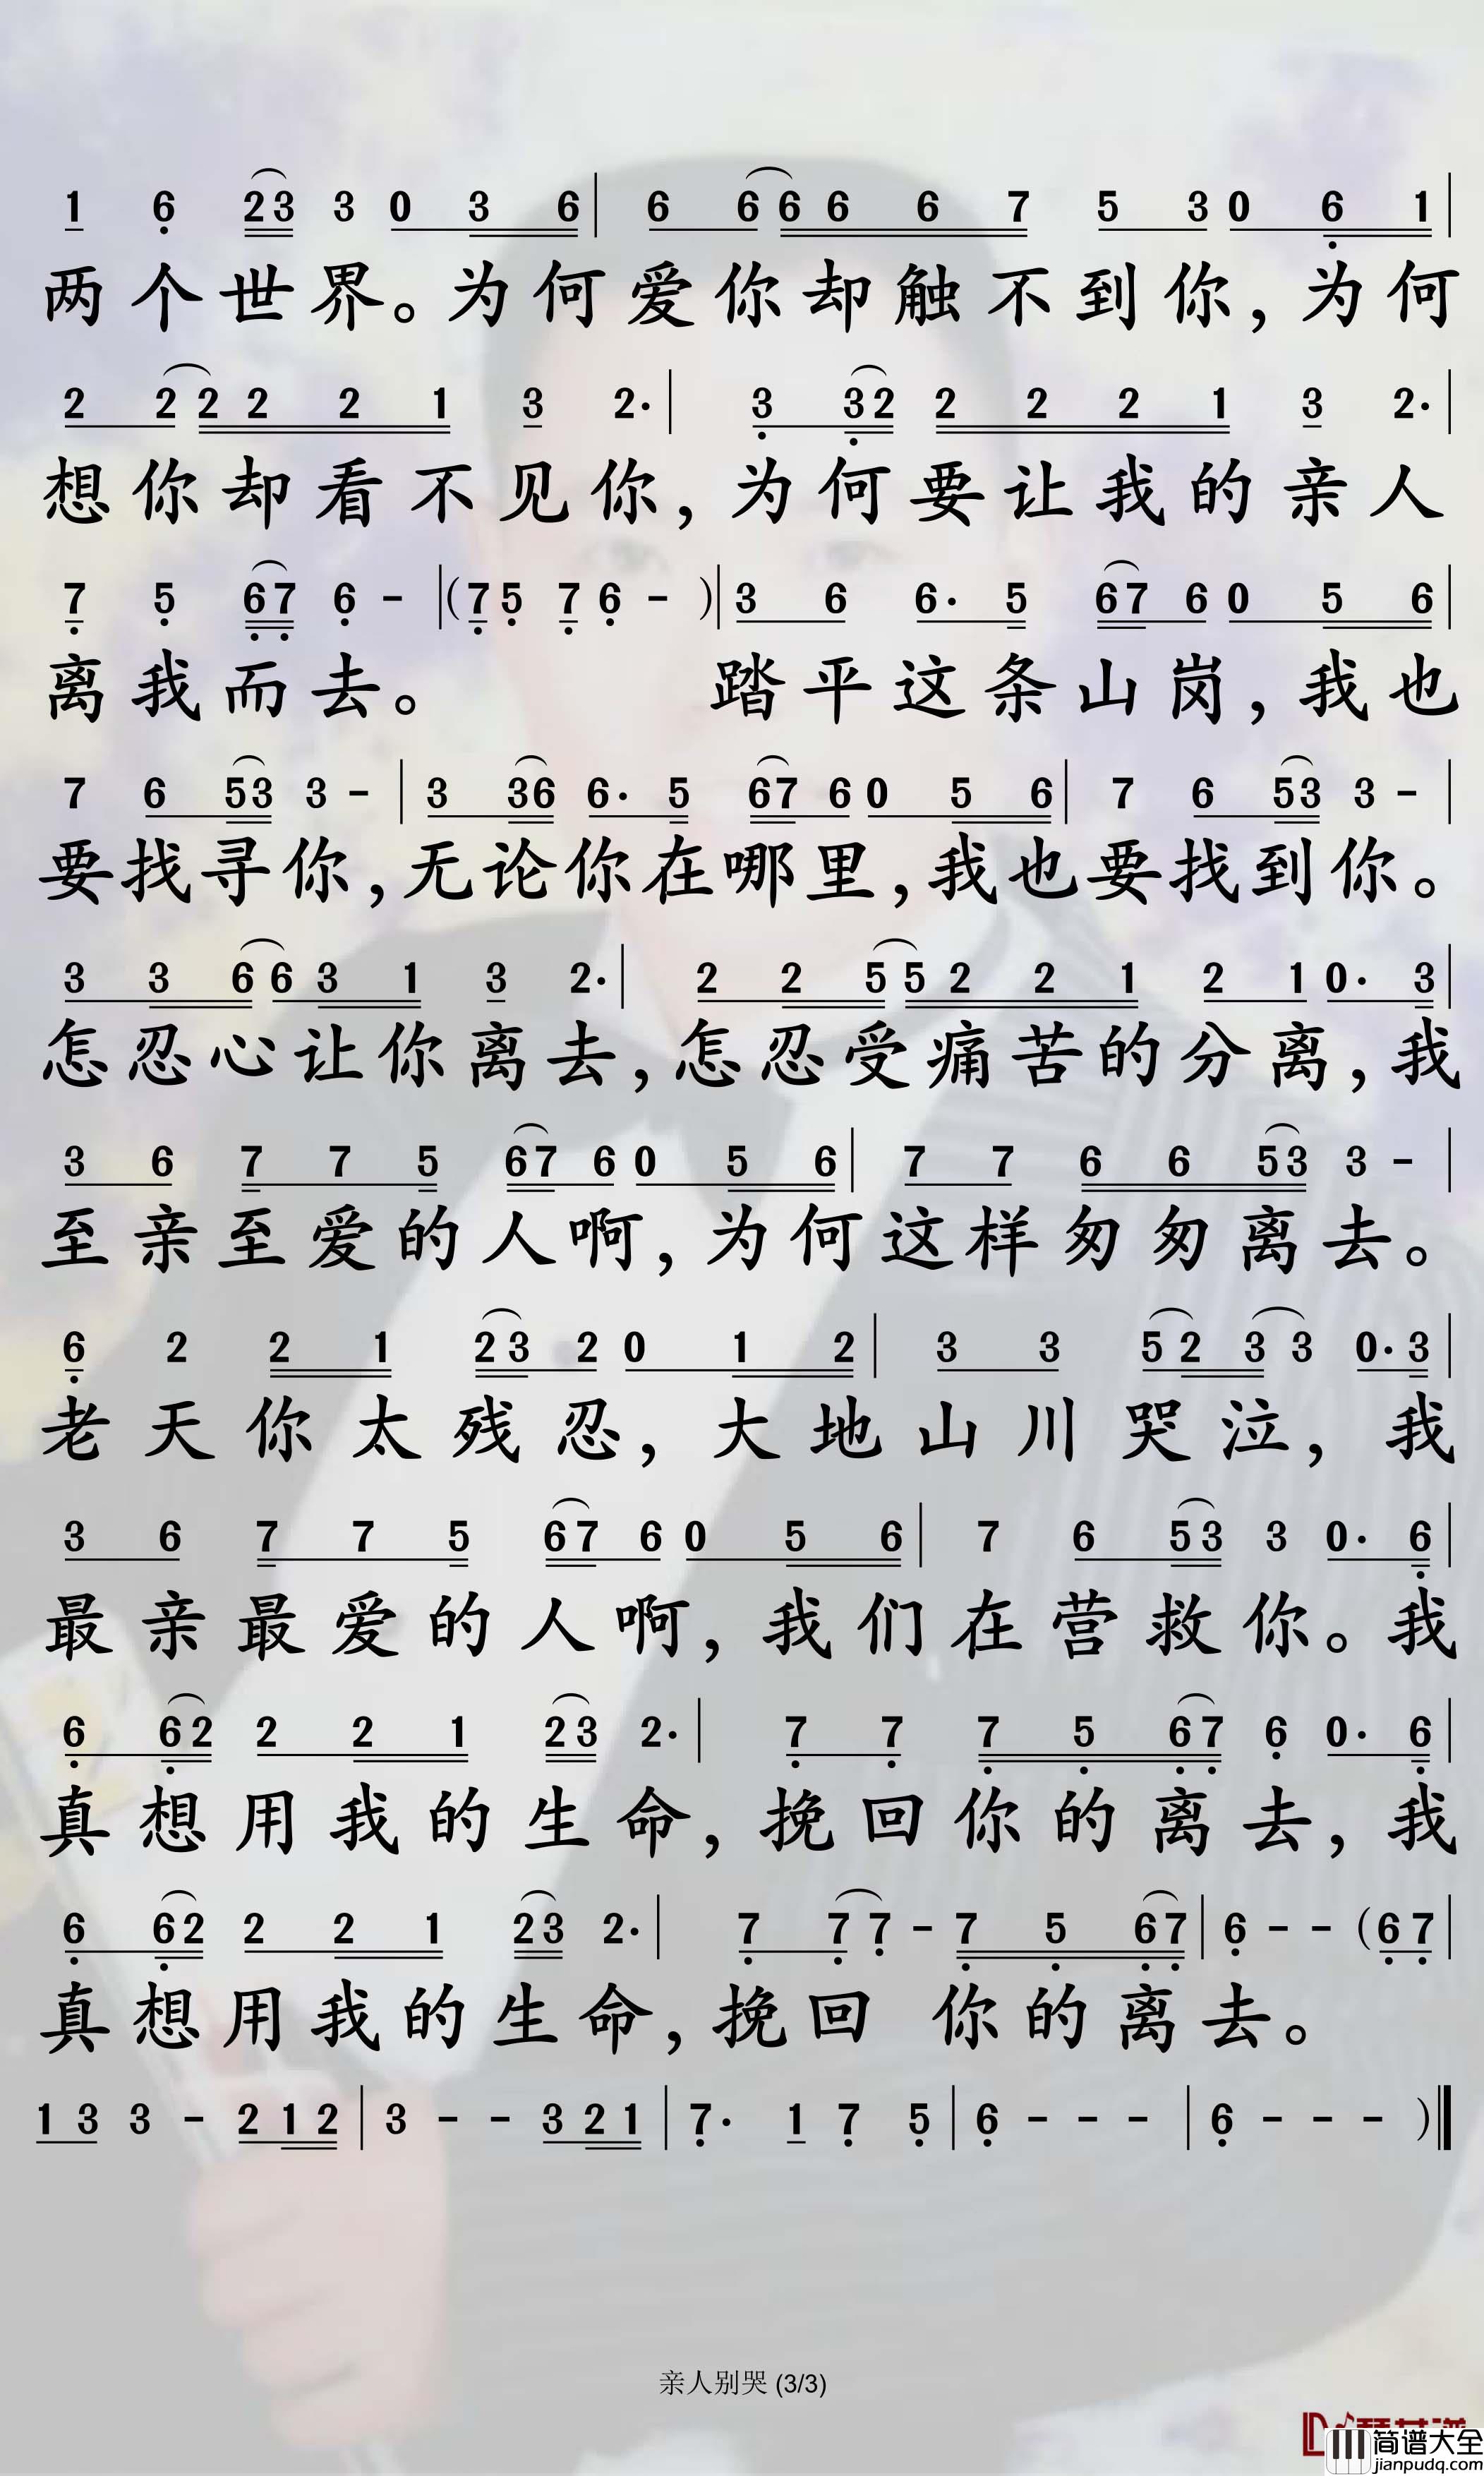 1 6 23 3 0 3 6 | 6 66 6 6 7 5 3 0 6 1 |
两个世界。为何爱你却触不到你,为何
2 22 2 2 1 3 2· | 3 32 2 2 2 1 3 2· |
想你却看不见你,为何要让我的亲人
7 5 67 6 - | (7 5 7 6 - ) | 3 6 6· 5 67 6 0 5 6 |
离我而去。 踏平这条山岗,我也
7 6 53 3 - | 3 36 6· 5 67 6 0 5 6 | 7 6 53 3 - |
要找寻你,无论你在哪里,我也要找到你。
3 3 66 3 1 3 2· | 2 2 55 2 2 1 2 1 0· 3 |
怎忍心让你离去,怎忍受痛苦的分离,我
3 6 7 7 5 67 6 0 5 6 | 7 7 6 6 53 3 - |
至亲至爱的人啊,为何这样匆匆离去。
6 2 2 1 23 2 0 1 2 | 3 3 52 3 3 0· 3 |
老天你太残忍,大地山川哭泣,我
3 6 7 7 5 67 6 0 5 6 | 7 6 53 3 0· 6 |
最亲最爱的人啊,我们在营救你。我
6 62 2 2 1 23 2· | 7 7 7 5 67 6 0· 6 |
真想用我的生命,挽回你的离去,我
6 62 2 2 1 23 2· | 7 77 - 7 5 67 | 6 - - (67 |
真想用我的生命,挽回 你的离去。
1 3 3 - 2 1 2 | 3 - - 3 2 1 | 7· 1 7 5 | 6 - - - | 6 - - - )‖
亲人别哭 (3/3)
简谱大全
jianpudq.com